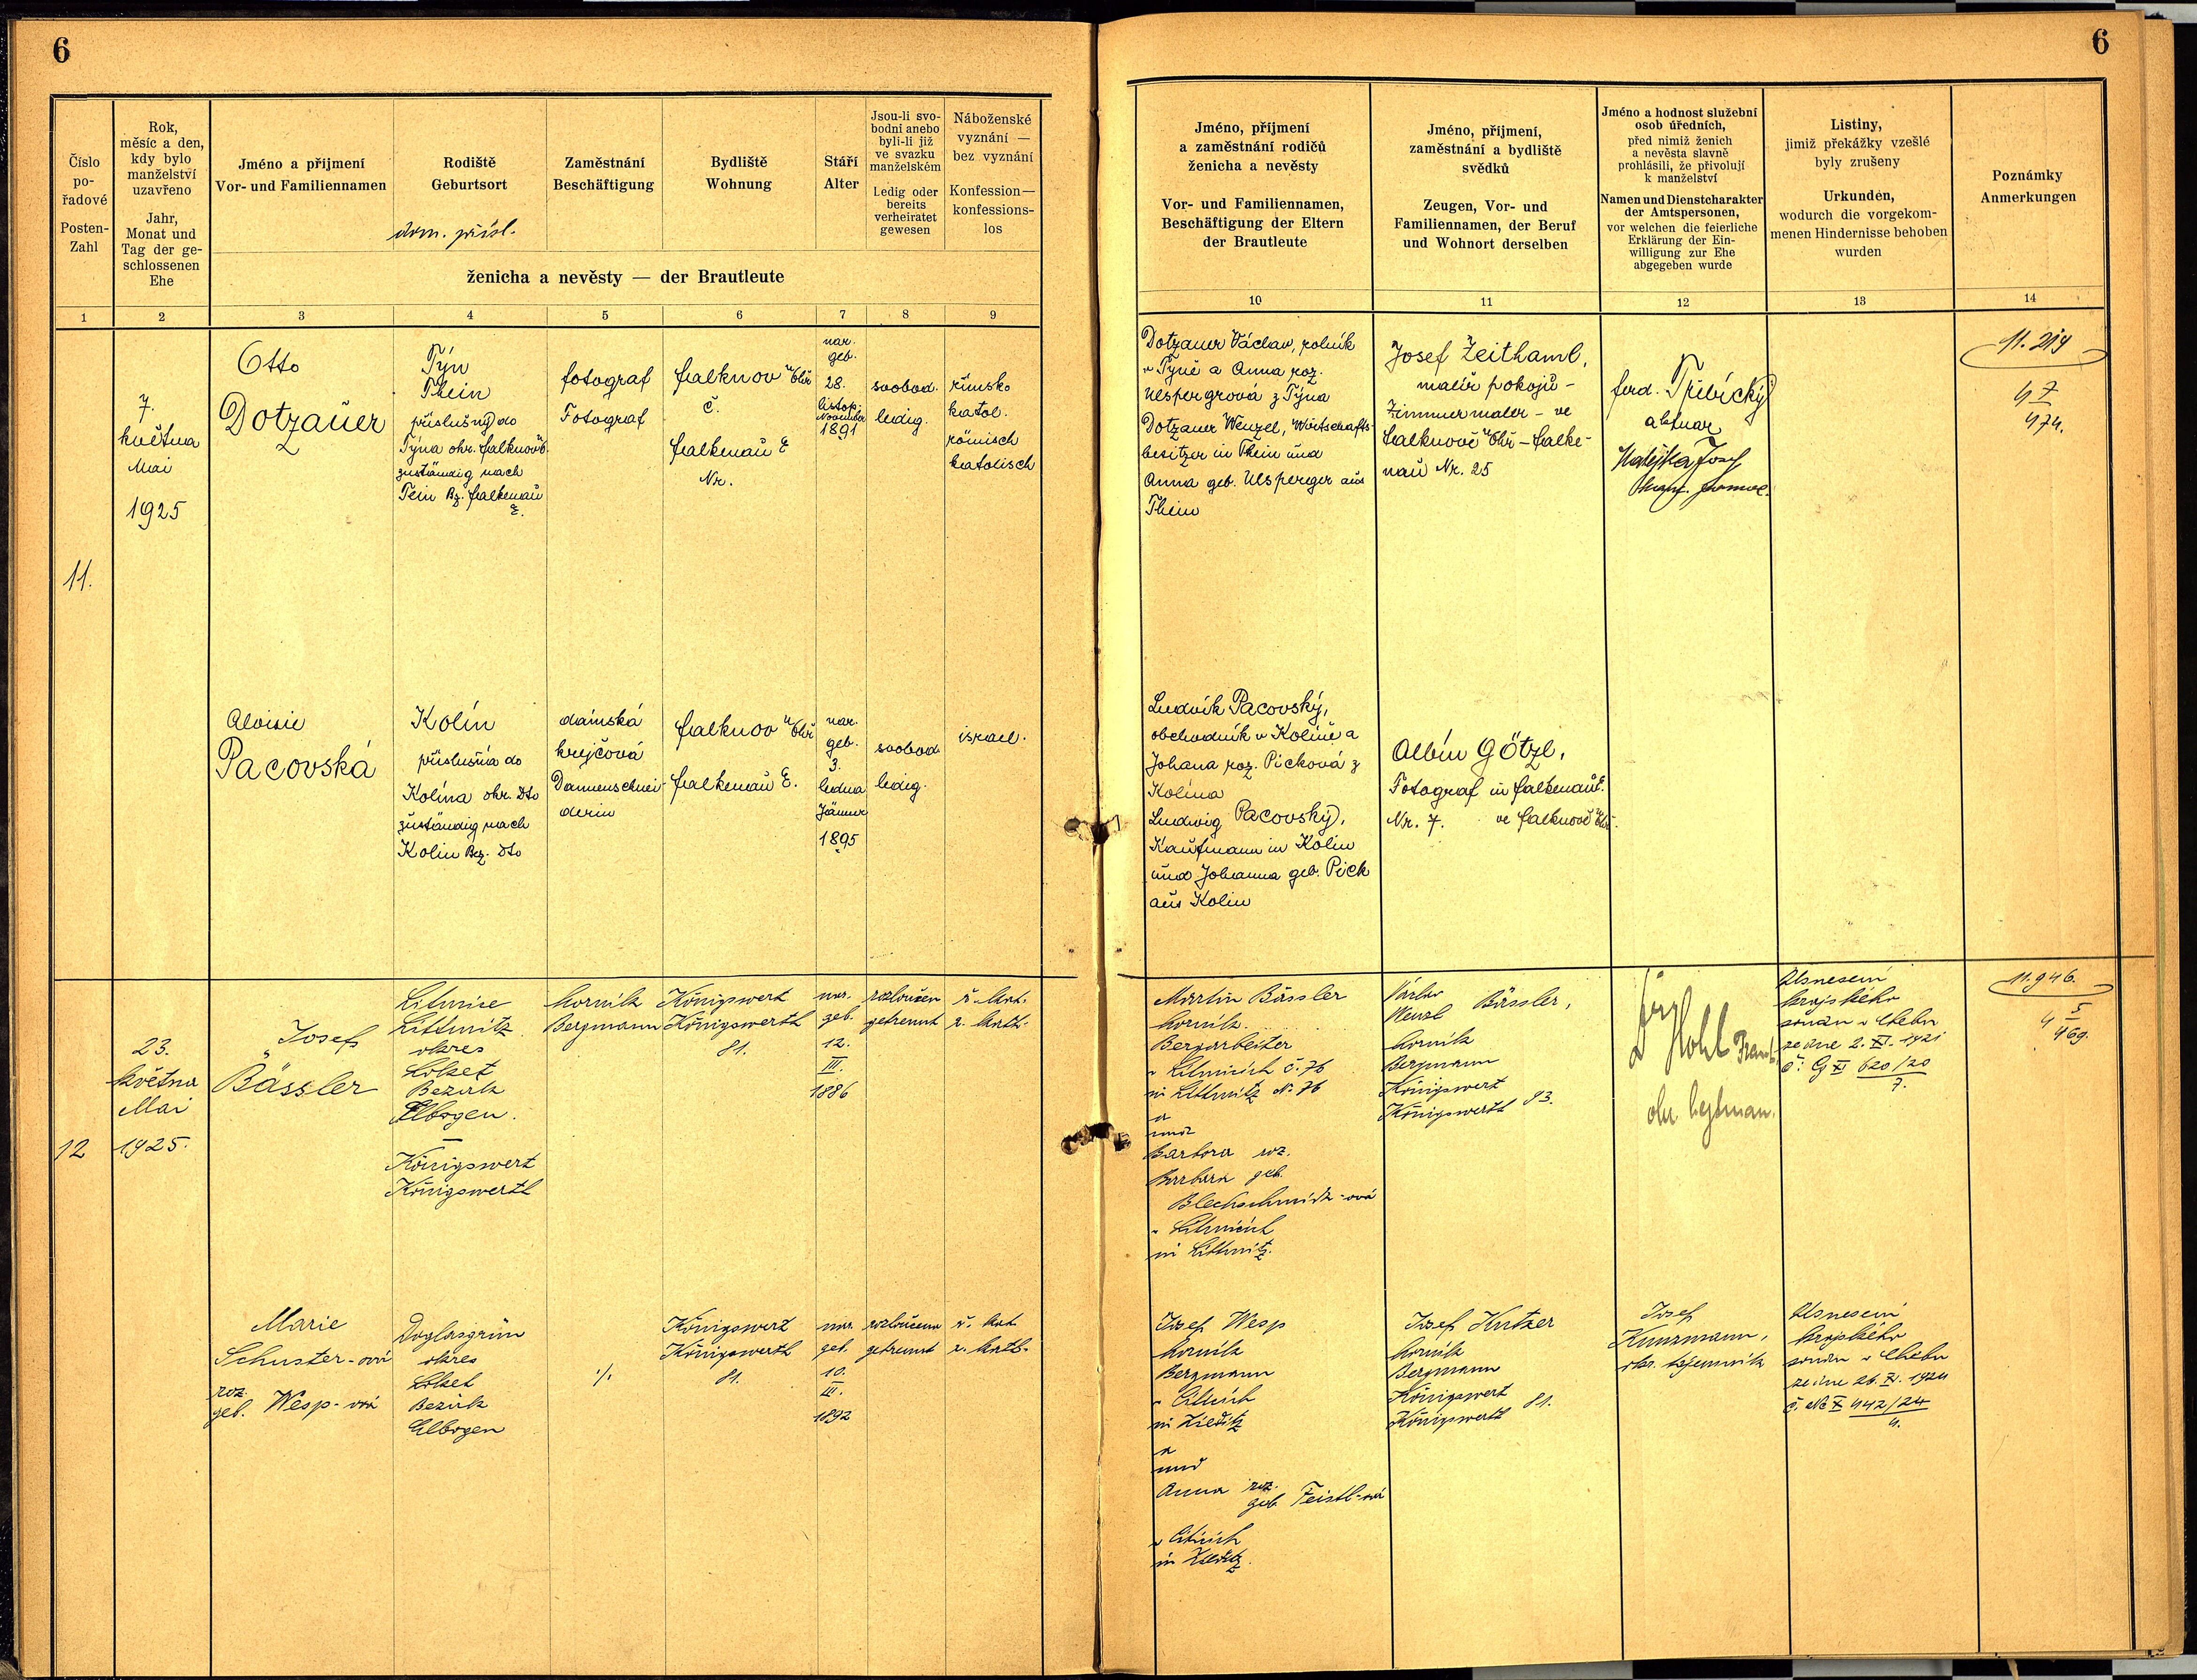 6
6
Číslo
po-
řadové
Posten-
Zahl
Rok,
měsíc a den,
kdy bylo
manželství
uzavřeno
Jahr,
Monat und
Tag der ge-
schlossenen
Ehe
Jméno a přijmení
Vor- und Familiennamen
Rodiště
Geburtsort
dom. přísl.
Zaměstnání
Beschäftigung
Bydliště
Wohnung
Stáří
Alter
Jsou-li svo-
bodni anebo
byli-li již
ve svazku
manželském
Ledig oder
bereits
verheiratet
gewesen
Náboženské
vyznání —
bez vyznání
Konfession—
konfessions-
los
ženicha a nevěsty — der Brautleute
Jméno, příjmení
a zaměstnání rodičů
ženicha a nevěsty
Vor- und Familiennamen,
Beschäftigung der Eltern
der Brautleute
Jméno, příjmení,
zaměstnání a bydliště
svědků
Zeugen, Vor- und
Familiennamen, der Beruf
und Wohnort derselben
Jméno a hodnost služební
osob úředních,
před nimiž ženich
a nevěsta slavně
prohlásili, že přivolují
k manželství
Namen und Dienstcharakter
der Amtspersonen,
vor welchen die feierliche
Erklärung der Ein-
willigung zur Ehe
abgegeben wurde
Listiny,
jimiž překážky vzešlé
byly zrušeny
Urkunden,
wodurch die vorgekom-
menen Hindernisse behoben
wurden
Poznámky
Anmerkungen
1 2 3 4 5 6 7 8 9 10 11 12 13 14
11.
7.
května
Mai
1925
Otto
Dotzauer
Týn
Thein
příslušný do
Týna okr. Falknov
zuständig nach
Tein Bz. Falkenau
E.
fotograf
Fotograf
Falknov n Ohř
č.
Falkenau E
Nr.
nar.
geb.
28.
listop.
November
1891
svobod.
ledig.
římsko
katol.
römisch
katolisch
Dotzauer Václav, rolník
v Týně a Anna roz.
Ulspergrová z Týna
Dotzauer Wenzel, Wirtschafts-
besitzer in Thein und
Anna geb. Ulsperger aus
Thein
Josef Zeithaml,
malíř pokojů -
Zimmermaler - ve
Falknově n Ohř - Falke-
nau Nr. 25
Ferd. Třebický
aktuar
Matějka Josef
11.219
47
974.
Aloisie
Pacovská
Kolín
příslušná do
Kolína okr. dto
zuständig nach
Kolin Bez. dto
dámská
krejčová
Damenschnei-
derin
Falknov n Ohř
Falkenau E.
nar.
geb.
3.
ledna
Jänner
1895
svobod
ledig.
israel.
Ludvík Pacovský,
obchodník v Kolíně a
Johana roz. Picková z
Kolína
Ludwig Pacovský,
Kaufmann in Kolin
und Johanna geb. Pick
aus Kolin
Albín Götzl,
Fotograf in Falkenau E.
Nr. 7. ve Falknově n Ohř.
12
23.
května
Mai
1925.
Josef
Bässler
Litmice
Littmitz
okres
Loket
Bezirk
Elbogen.
Königswert
Königswerth
horník
Bergmann
Königswert
Königswerth
81.
nar.
geb.
12.
III.
1886
rozloučen
getrennt
ř. kat.
r. kath.
Martin Bässler
horník.
Bergarbeiter
v Litmicích č. 76
in Littmitz N. 76
a
und
Barbora roz.
Barbara geb.
Blechschmidt-ová
v Litmicích
in Littmitz.
Václav
Wenzl Bässler,
horník
Bergmann
Königswert
Königswerth 83.
Hohl
Usnesení
krajského
soudu v Chebu
ze dne 2. XI. 1921
č. G XI 620/20
7.
11.946.
5
4
469.
Marie
Schuster-ová
roz.
geb. Wesp-ová
Doglasgrün
okres
Loket
Bezirk
Elbogen
./.
Königswert
Königswerth
81.
nar.
geb.
10.
III.
1892
rozloučena
getrennt
ř. kat
r. kath.
Josef Wesp
horník
Bergmann
in Zieditz
a
und
Anna roz.
geb. Feistl-ová
in Zieditz.
Josef Kutzer
horník
Bergmann
Königswert
Königswerth 81.
Josef
Kunzmann,
okr. tajemník
Usnesení
krajského
soudu v Chebu
ze dne 26. XI. 1924
č. Nc X 442/24
4.